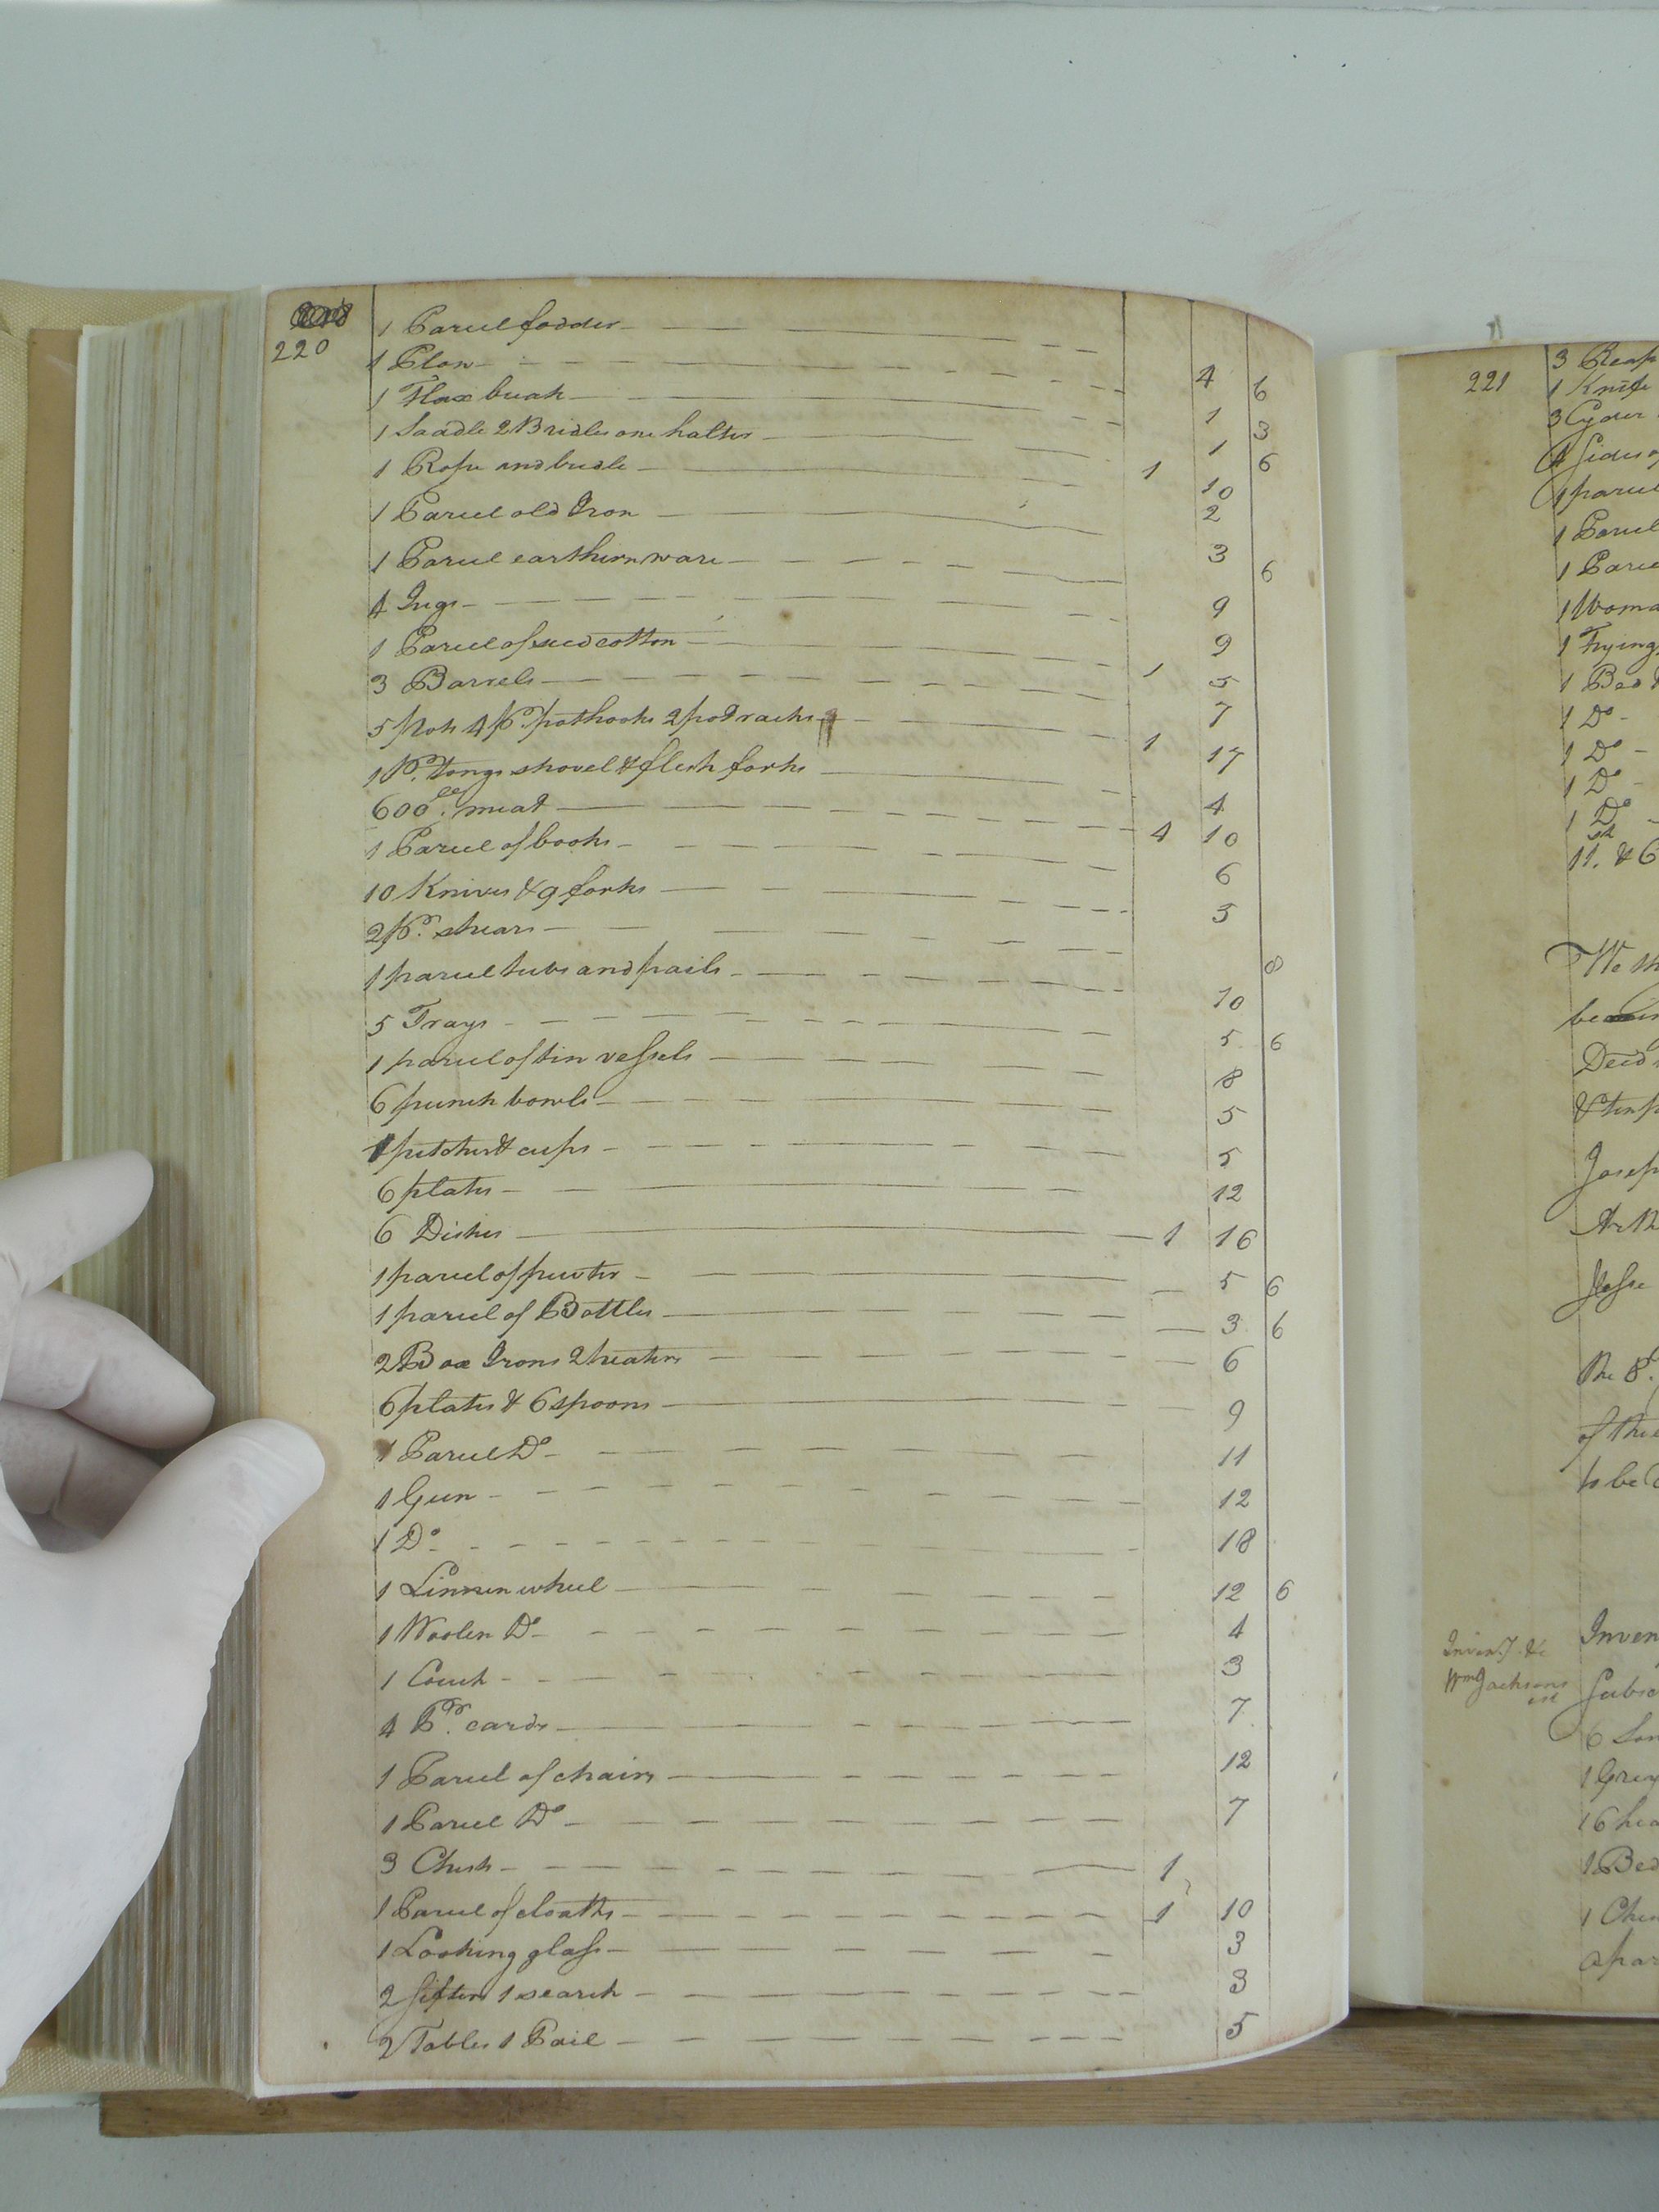 220
1 Parcel fodder 4 6
1 Plow 1 3
1 Flax break 1 6
1 Saddle 2 Bridles one halter 1 10
1 Rope and bridle 2
1 Parcel old Iron 3 6
1 Parcel earthern ware 9
4 Jugs 9
1 Parcel of seed cotton 1 5
3 Barrels 7
5 pots 4 pr. pothooks 2 pot racks 1 17
1 Pr. tongs shovel & flesh forks 4
600 lb. meat 4 10
1 Parcel of books 6
10 Knives & 9 forks 5
2 Pr. shears 8
1 parcel tubs and pails 10
5 Trays 5 6
1 parcel of tin vessels 8
6 punch bowls 5
1 pitcher & cups 5
6 plates 12
6 Dishes 1 16
1 parcel of pewter 5 6
1 parcel of Bottles 3 6
2 Box Irons 2 heaters 6
6 plates & 6 spoons 9
1 Parcel Do 11
1 Gun 12
1 Do 18
1 Linnen wheel 12 6
1 Woolen Do 4
1 Couch 3
4 Pr. cards 7
1 Parcel of chairs 12
1 Parcel Do 7
3 Chests 1
1 Parcel of cloaths 1 10
1 Looking glass 3
2 sifters 1 search 3
2 Tables 1 Pail 5
221
3 Reap
1 Knife
3 Cyder
4 sides of
1 parcel
1 Parcel
1 Parce
1 Woma
1 Frying
1 Bed
1 Do
1 Do
1 Do
1 Do
11. & 6
We th
Deed
Joseph
Jesse
the 8
of the
to be
Inven.y &c
Wm Jacksons
est
Inven
6
1 Grey
16 hea
1 Bed
1 Ches
a par